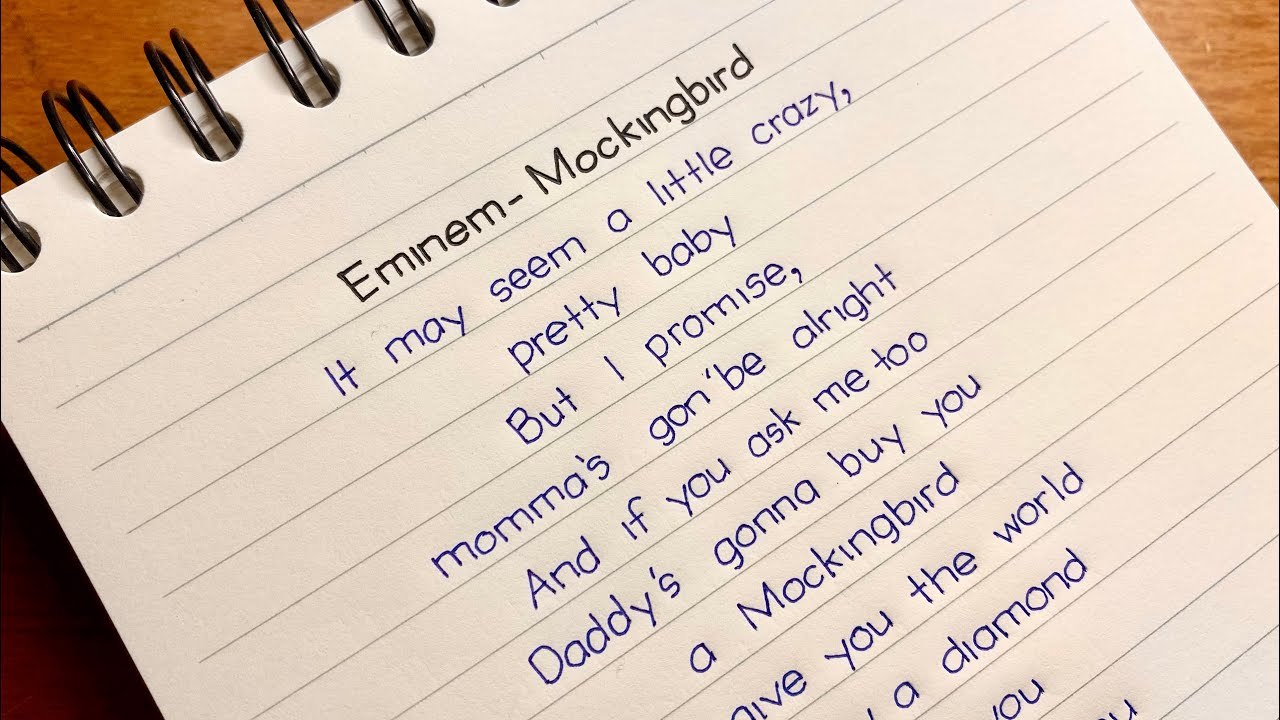 Eminem - Mockingbird
It may seem a little crazy,
pretty baby
But I promise,
momma's gon' be alright
And if you ask me too
Daddy's gonna buy you
a Mockingbird
you the world
a diamond